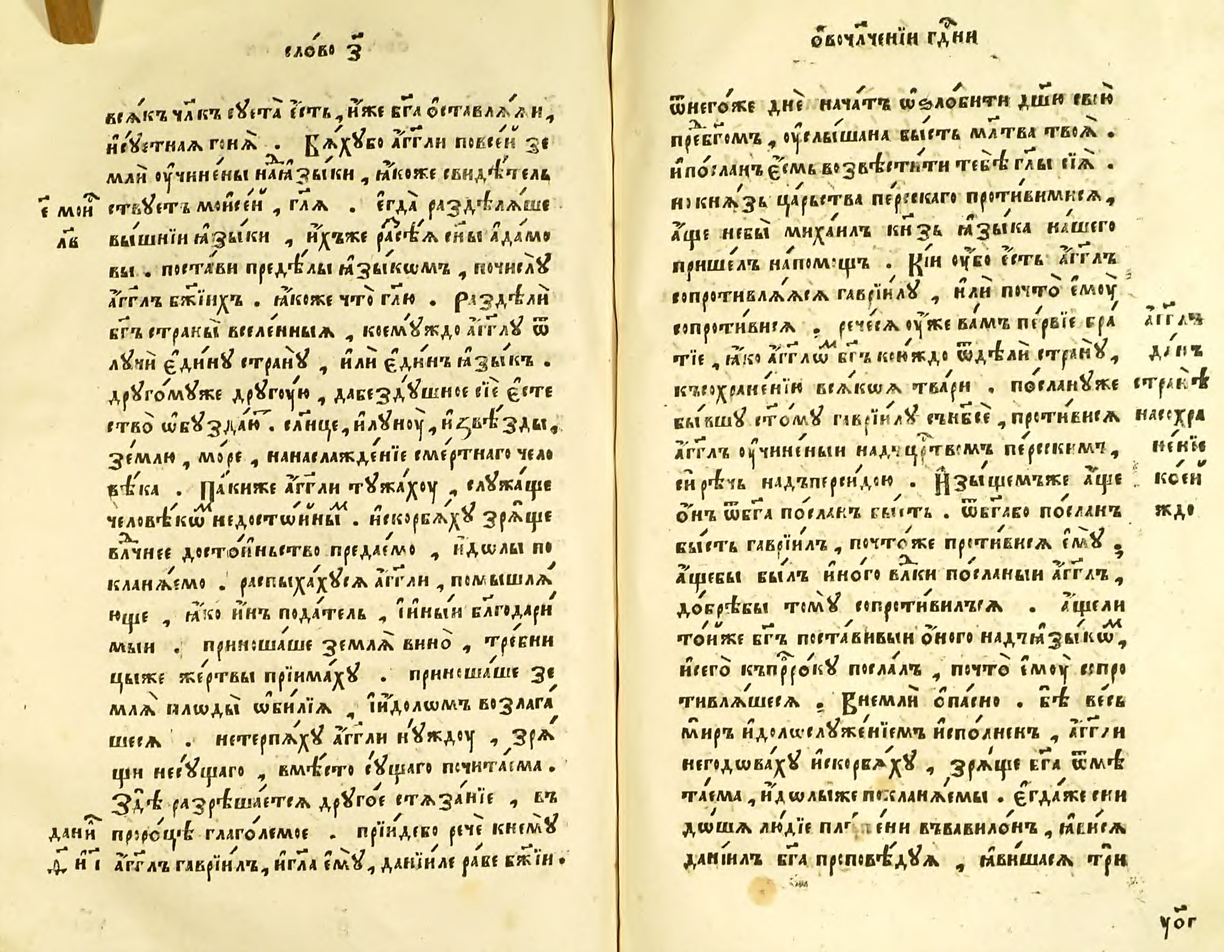 сло́во з҃
всѧ́къ чл҃къ сꙋета̀ є҆́сть, и҆́же бг҃а ѡ҆ставлѧ́ѧи,
и҆сꙋ́етнаѧ гонѧ̀ . Бѧ́хꙋбо а҆́гг҃ли повсе́й зе
млѝ оу҆чине́ны наꙗ҆зы́ки , ꙗ҆́коже свидѣ́тель
ствꙋетъ мойсе́й , гл҃ѧ . є҆гда̀ раздѣлѧ́ше
е҃ мой
л҃в
вы́шнїи ꙗ҆зы́ки , и҆́хъже разсѣ́ѧ сн҃ы а҆да́мо
вы . поста́ви предѣ́лы ꙗ҆зы́кѡмъ , почислꙋ̀
а҆́гг҃лъ бж҃їихъ . ꙗ҆́коже что̀ гл҃ю . Раздѣлѝ
бг҃ъ страны̀ вселе́нныѧ , коемꙋ́ждо а҆́гг҃лꙋ ѿ
лꙋчѝ є҆ди́нꙋ странꙋ̀ , и҆лѝ є҆ди́нъ ꙗ҆зы́къ .
дрꙋго́мꙋже дрꙋгꙋ́ю , дабездꙋ́шное сїѐ є҆сте
ство̀ ѡ҆бꙋзда́ю҆т . сл҃нце , и҆лꙋноу̀ , и҆ѕвѣ́зды ,
зе́млю , мо́ре , нанаслажде́нїе сме́ртнаго чело
вѣ́ка . Па́киже а҆́гг҃ли тꙋжа́хоу , слꙋжа́ще
человѣ́кѡм недосто́йным . и҆скорбѧ́хꙋ зрѧ́ще
влⷣчнее досто́иньство предае́мо , и҆́дѡлы по
кланѧ́емо . распыха́хꙋсѧ а҆́гг҃ли , помышлѧ́
юще , ꙗ҆́ко и҆́нъ пода́тель , і҆и҆ны́й благодари́
мыи . приноша́ше землѧ̀ вино̀ , тре́бни
цыже же́ртвы прїима́хꙋ . приноша́ше зе
млѧ̀ плоды̀ ѡ҆би́лїѧ , і҆и҆́долѡмъ возлага́
шесѧ . нетерпѧ́хꙋ а҆́гг҃ли нꙋ́ждоу , зрѧ́
щи несꙋ́щаго , вмѣ́сто сꙋ́щаго почита́ема .
Здѣ̀ разрѣша́етсѧ дрꙋго́е стѧза́нїе , въ
проро́цѣ глаго́лемое . прїи́дебо речѐ кнемꙋ̀
а҆́гг҃лъ гаврїи́лъ , и҆гл҃а є҆мꙋ̀ , данїи́ле ра́бе бж҃їи .
данїи
ѡ҆вочл҃ченїи гдⷭ҇ни
ѿнего́же днѐ нача́тъ ѡ҆зло́бити дш҃ꙋ свою̀
предбг҃омъ , оу҆слы́шана бы́сть мл҃тва твоѧ̀ .
и҆по́сланъ є҆́смь возвѣсти́ти тебѣ̀ гл҃ы сїѧ̀ .
нокнѧ́зь ца́рьства пе́рсскаго проти́вимисѧ ,
а҆́ще небы̀ михаи́лъ кнз҃ь ꙗ҆зы́ка на́шего
прише́лъ напо́мощь . Кі́и оу҆́бо є҆́сть а҆́гг҃лъ
сопротивлѧ́ѧсѧ гаврїи́лꙋ , и҆лѝ почто̀ є҆моу̀
сопроти́висѧ . рече́сѧ оу҆́же ва́мъ пе́рвїе бра́
тїе , ꙗ҆́ко а҆́гг҃лѡм бг҃ъ коиждо ѿдѣлѝ странꙋ̀ ,
късохране́нїю всѧ́коѧ тва́ри . по́сланꙋже
бы́вшꙋ ст҃о́мꙋ гаврїи́лꙋ сънб҃сѐ , проти́висѧ
а҆́гг҃лъ оу҆чине́ныи надъцр҃твомъ пе́рсскимъ ,
си́ рѣчь надъперси́дою . И҆зы́щемъже а҆́ще
о҆́нъ ѿбг҃а по́сланъ бы́сть . ѿбг҃або по́сланъ
бы́сть гаврїи́лъ , почто́же проти́висѧ є҆мꙋ̀ ;
а҆́щебы бы́лъ и҆но́го влⷣки по́сланыи а҆́гг҃лъ ,
до́брѣбы томꙋ̀ сопроти́вилъсѧ . а҆́щели
то́йже бг҃ъ поста́вивыи о҆́ного надъꙗ҆зы́кѡм ,
и҆сего̀ къпрⷪ҇ро́кꙋ посла́лъ , почто̀ є҆моу̀ сопро
тивлѧ́шесѧ . Внемлѝ о҆па́сно . бѣ̀ ве́сь
ми́ръ и҆долослꙋже́нїемъ и҆спо́лненъ , а҆́гг҃ли
негодова́хꙋ и҆скорбѧ́хꙋ , зрѧ́ще бг҃а ѿмѣ́
та́ема , и҆́дѡлыже покланѧ́емы . є҆гда́же сни
до́шѧ лю́дїе плѣне́ни въвавило́нъ , ꙗ҆ви́сѧ
данїи́лъ бг҃а проповѣ́дꙋѧ , ꙗ҆ви́шасѧ трѝ
а҆́гг҃лъ
да́нъ
странѣ̀
насохра
не́нїе
ко́ей
ждо
уо҃г